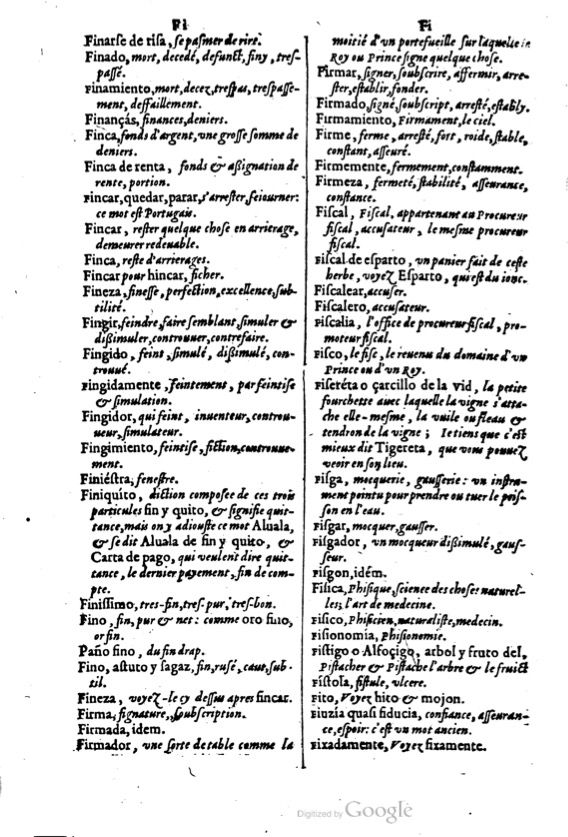 Fi
Finarse de risa, se pasmer de rire.
Finado, mort, decedé, defunct, finy, tres-
passé.
Finamiento, mort, decez, trespas, trespasse-
ment, deffaillement.
Finanças, finances, deniers.
Finca, fonds d'argent, vne grosse somme de
deniers.
Finca de renta, fonds & assignation de
rente, portion.
Fincar, quedar, parar, s'arrester, seiourner:
ce mot est Portugais.
Fincar, rester quelque chose en arrierage,
demeurer redeuable.
Finca, reste d'arrierages.
Fincar pour hincar, ficher.
Fineza, finesse, perfection, excellence, sub-
tilité.
Fingir, feindre, faire semblant, simuler &
dissimuler, controuuer, contrefaire.
Fingido, feint, simulé, dissimulé, con-
trouué.
Fingidamente, feintement, par feintise
& simulation.
Fingidor, qui feint, inuenteur, controu-
ueur, simulateur.
Fingimiento, feintise, fiction, controuue-
ment.
Finiéstra, fenestre.
Finiquíto, diction composee de ces trois
particules fin y quito, & signifie quit-
tance, mais on y adiouste ce mot Aluala,
& se dit Aluala de fin y quito, &
Carta de pago, qui veulent dire quit-
tance, le dernier payement, fin de com-
pte.
Finissimo, tres-fin, tres-pur, tres-bon.
Fino, fin, pur & net: comme oro fino,
or fin.
Paño fino, du fin drap.
Fino, astuto y sagaz, fin, rusé, caut, sub-
til.
Fineza, voyez-le cy dessus apres fincar.
Firma, signature, subscription.
Firmada, idem.
Firmador, vne sorte de table comme la
Fi
moitié d'un portefueille sur laquelle in
Roy ou Prince signe quelque chose.
Firmar, signer, soubscrire, affermir, arre-
ster, establir, fonder.
Firmado, signé, soubscript, arresté, estably.
Firmamiento, Firmament, le ciel.
Firme, ferme, arresté, fort, roide, stable,
constant, asseuré.
Firmemente, fermement, constamment.
Firmeza, fermeté, stabilité, asseurance,
constance.
Fiscal, Fiscal, appartenant au Procureur
fiscal, accusateur, le mesme procureur
fiscal.
Fiscal de esparto, vn panier fait de ceste
herbe, voyez Esparto, qui est du ionc.
Fiscalear, accuser.
Fiscalero, accusateur.
Fiscalia, l'office de procureur fiscal, pro-
moteur fiscal.
Fisco, le fisc, le reuenu du domaine d'vn
Prince ou d'vn Roy.
Fiseréta o çarcillo de la vid, la petite
fourchette auec laquelle la vigne s'atta-
che elle-mesme, la vuile ou fleau &
tendron de la vigne; Ie tiens que c'est
mieux dit Tigereta, que vous pouuez
veoir en son lieu.
Fisga, mocquerie, gausserie: vn instru-
ment pointu pour prendre ou tuer le pois-
son en l'eau.
Fisgar, mocquer, gausser.
Fisgador, vn mocqueur dissimulé, gaus-
seur.
Fisgon, idém.
Fisica, Phisique, science des choses naturel-
les; l'art de medecine.
Fisico, Phisicien, naturaliste, medecin.
Fisionomia, Phisionomie.
Fistigo o Alfoçigo, arbol y fruto del,
Pistacher & Pistache l'arbre & le fruict
Fistola, fistule, vlcere.
Fito, Voyez hito & mojon.
Fiuzia quasi fiducia, confiance, asseuran-
ce, espoir: c'est vn mot ancien.
Fixadamente, Voyez fixamente.
Digitized by Google